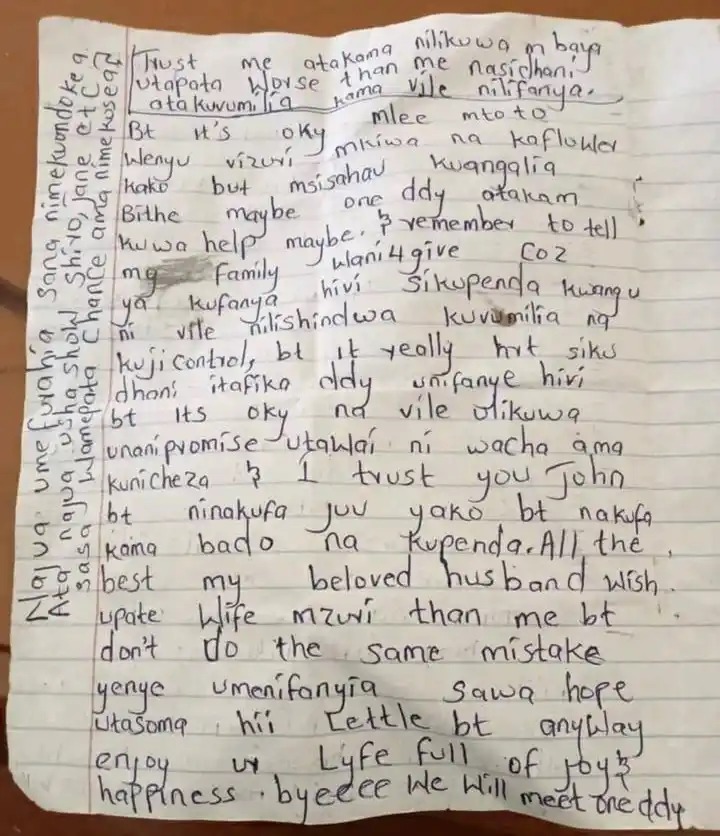 Trust me atakama nilikuwa mbaya
utapata worse than me nasidhani
atakuvumilia kama vile nilifanya.
Bt it's oky mlee mtoto
wenyu vizuri mkiwa na kaflower
kako but msisahau kuangalia
Bithe maybe one ddy atakam
kuwa help maybe. & remember to tell
my family wani4give coz
ya kufanya hivi sikupenda kwangu
ni vile nilishindwa kuvumilia na
kujicontrol, bt it really hrt siku
dhani itafika ddy unifanye hivi
bt its oky na vile ulikuwa
unanipromise utawai ni wacha ama
kunicheza & I trust you John
bt ninakufa juu yako bt nakufa
kama bado na kupenda. All the
best my beloved husband wish
upate wife mzuri than me bt
don't do the same mistake
yenye umenifanyia sawa hope
utasoma hii Lettle bt anyway
enjoy ur Lyfe full of joy &
happiness. byeeee We will meet one ddy
Najua umefurahia sana nimekuondokea
Ata najua usha show Shiro, Jane etc
sasa wamepata chance ama nimekosea?